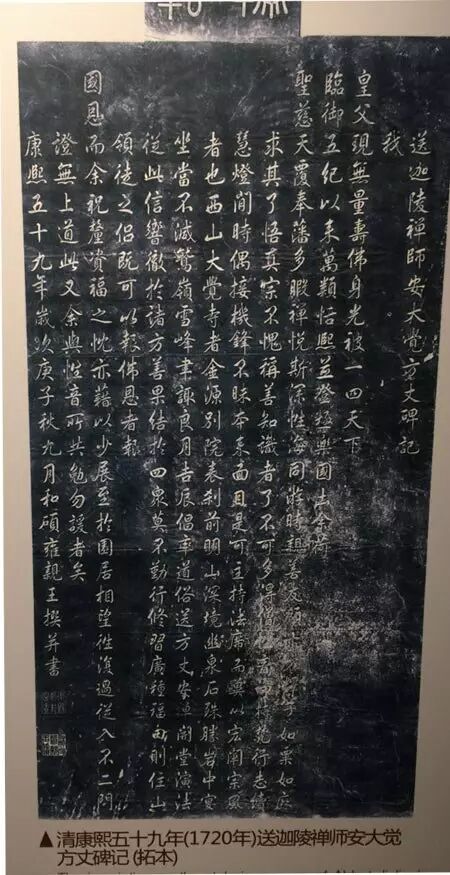 送迦陵禪師安大覺方丈碑記
我
皇父現無量壽佛身光被一四天下
臨御五紀以來萬類恬熙並登極樂國土余荷
聖慈天覆奉藩多暇禪悅斯深性海同游時親善友如粟如
求其了悟真宗不愧稱善知識者了不可多得僧性音梵行志續
慧燈閒時偶接機鋒不昧本來面目是可主持法席而以宏闡宗風
者也西山大覺寺者金源別院表剎前明山深境幽泉石殊勝岩中宴
坐當不減鷲嶺雪峰聿諏良月吉辰倡率道俗送方丈安單開堂演法
從此信響徹於諸方善果結於四眾莫不勤行修習廣種福田則住山
領徒之侶既可以報佛恩者報
國恩而余祝釐福之忱亦藉以少展至於園居相望往復過從入不二門
證無上道此又余與性音所共勉勿諼者矣
康熙五十九年歲次庚子秋九月和碩雍親王撰并書
▲清康熙五十九年(1720年)送迦陵禅师安大觉
方丈碑记 (拓本)